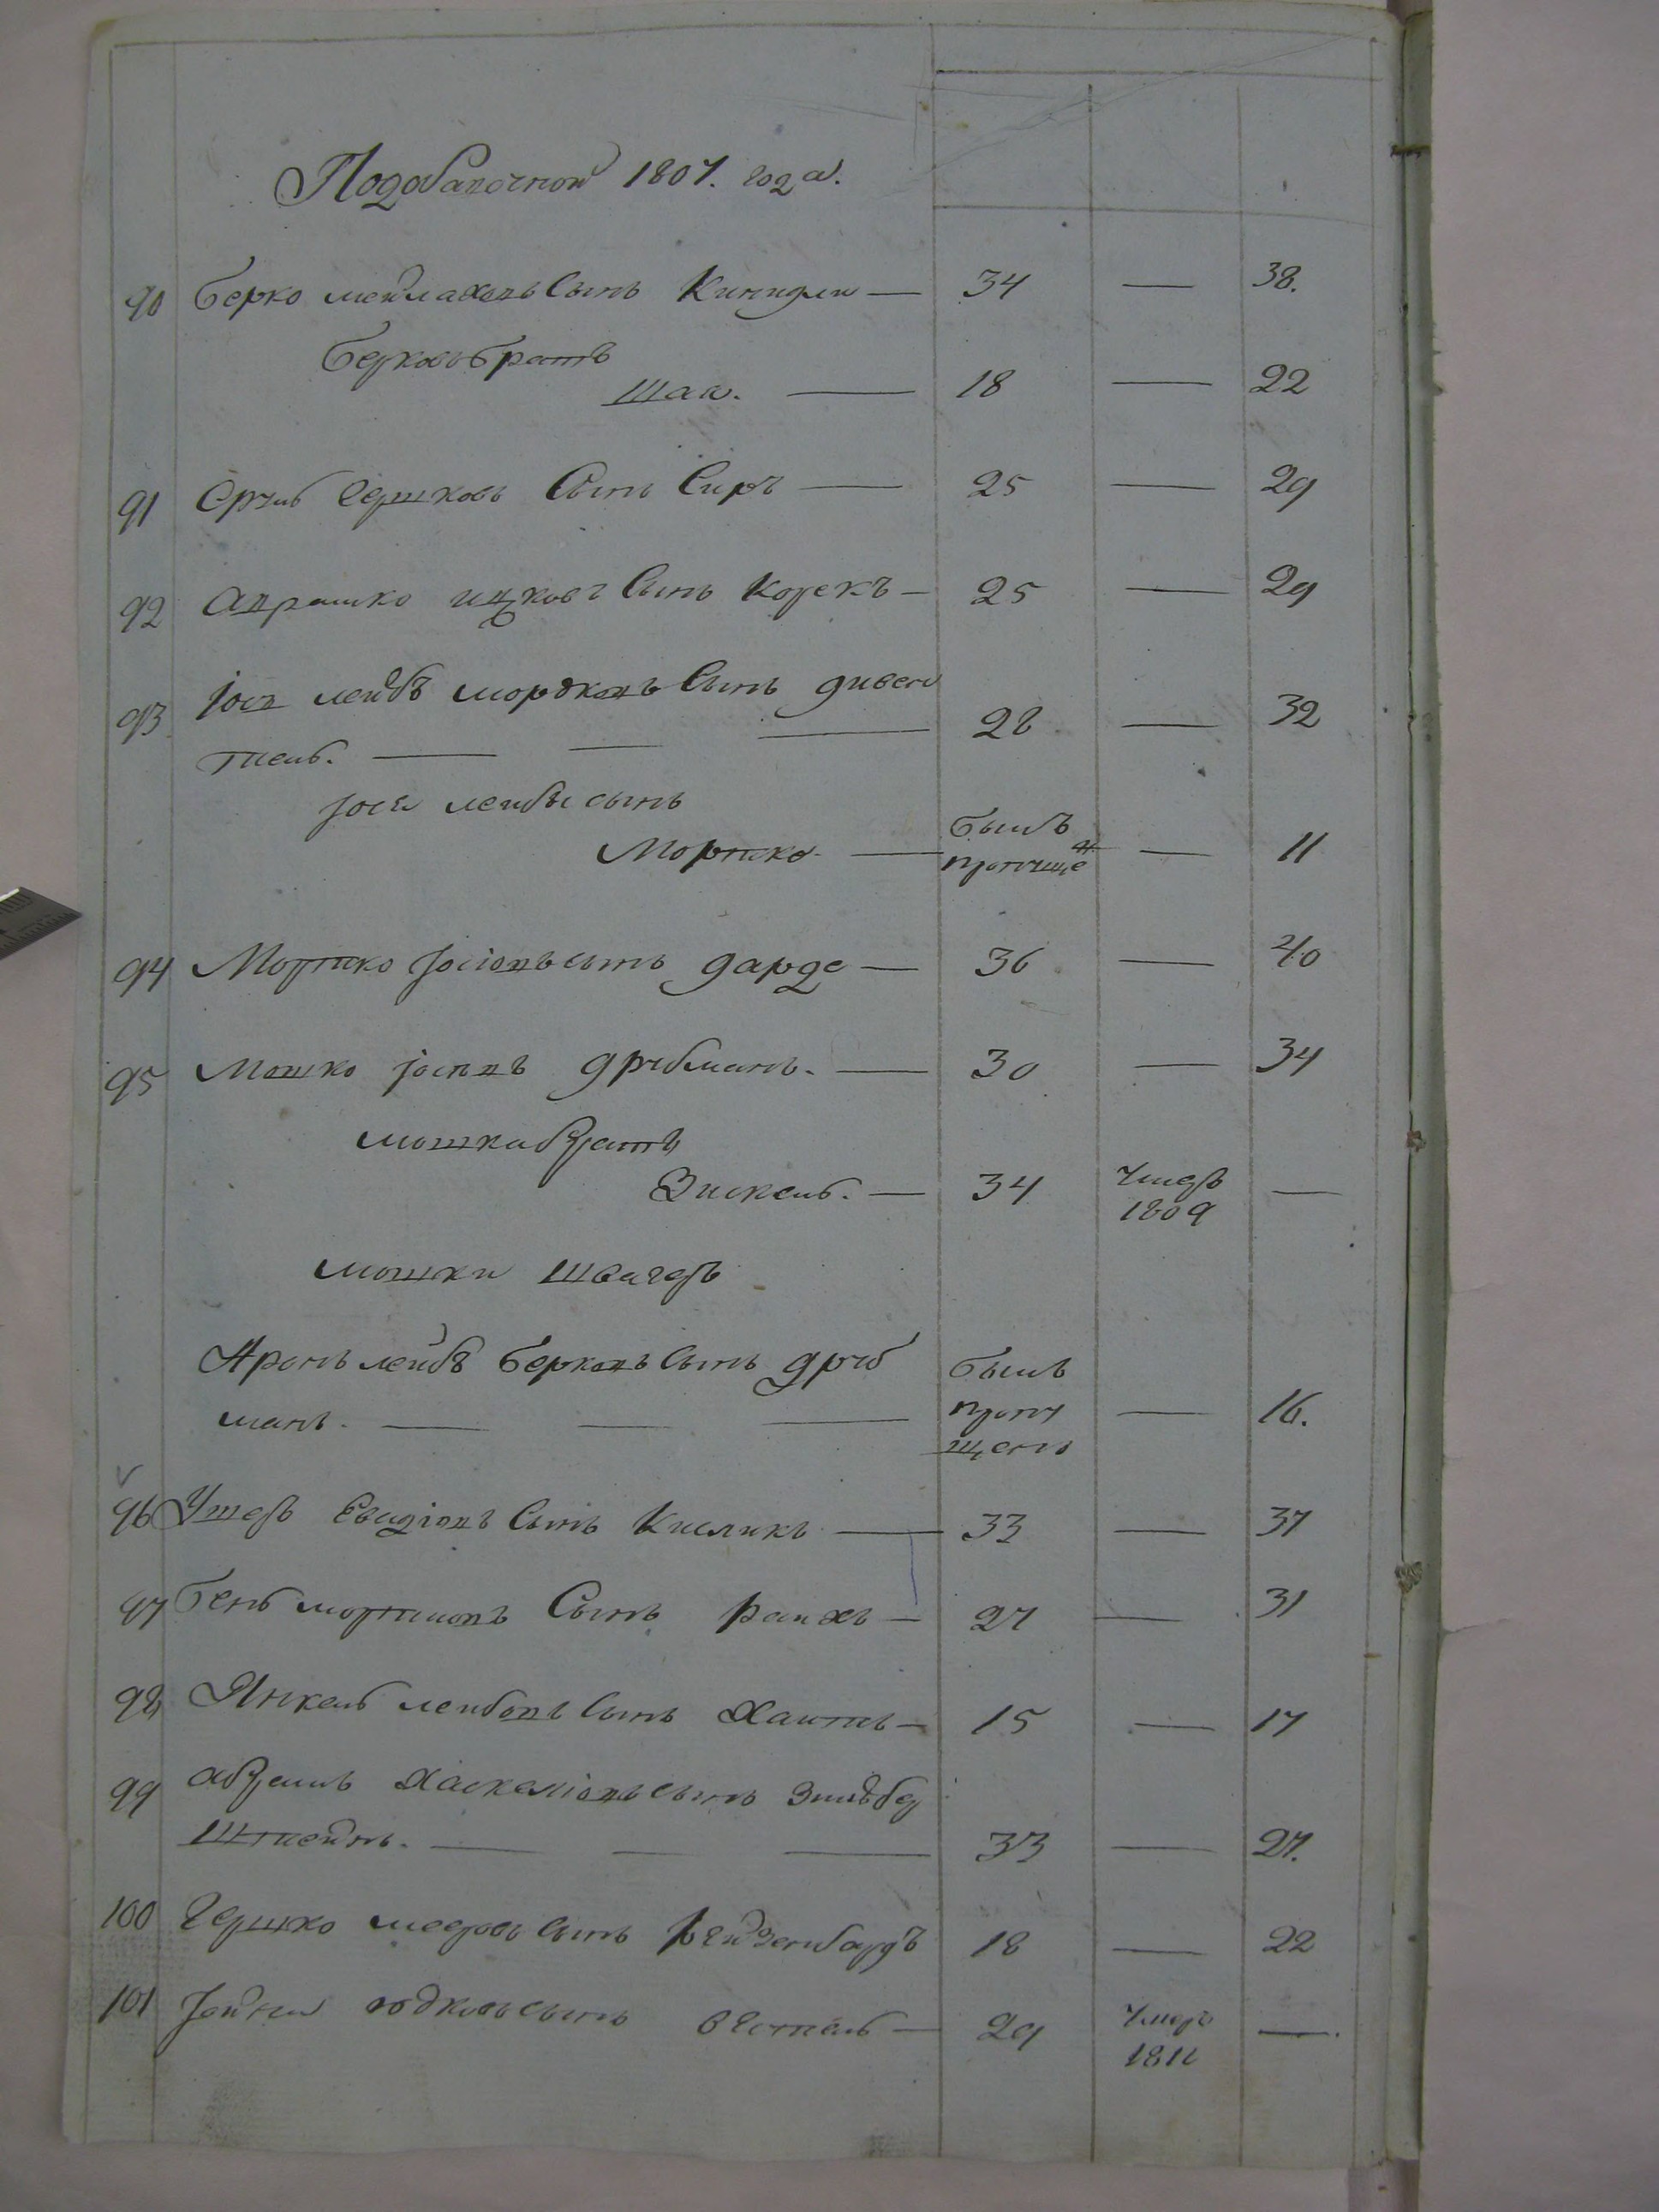 Подобавочной 1807. года.
90 Берко мейлаховъ Сынъ Кингдли — 34 — 38.
Берковъ братъ
Шая. — 18 — 22
91 Сруль Гершковъ Сынъ Сиръ — 25 — 29
92 Аврашко ицковъ Сынъ Корекъ — 25 — 29
93 Іось лейбъ мордковъ Сынъ дивен
тель. — — — 28 — 32
Іося лейбы сынъ
Мортко — былъ пропуще н — 11
94 Мортко Іосіовъ сынъ дарде — 36 — 40
95 Мошко іосповъ друбманъ. — 30 — 34
мошка братъ
Зискель. — 34 умеръ 1809 —
мошки швагеръ
Аронъ лейбъ Берковъ Сынъ друб
манъ. — — — былъ пропу щенъ — 16.
96 Ушеръ Евадіовъ Сынъ Кисликъ — 33 — 37
97 Бень мортковъ Сынъ райхъ — 27 — 31
98 Янкель лейбовъ Сынъ Хаитъ — 15 — 17
99 абрамъ Хаскеліовъ сынъ Зильбер
Штейнъ. — — — 33 — 27.
100 Гершко мееровъ Сынъ рейзенбардъ 18 — 22
101 Іойна юдковъ сынъ — 29 умеръ 1811 —